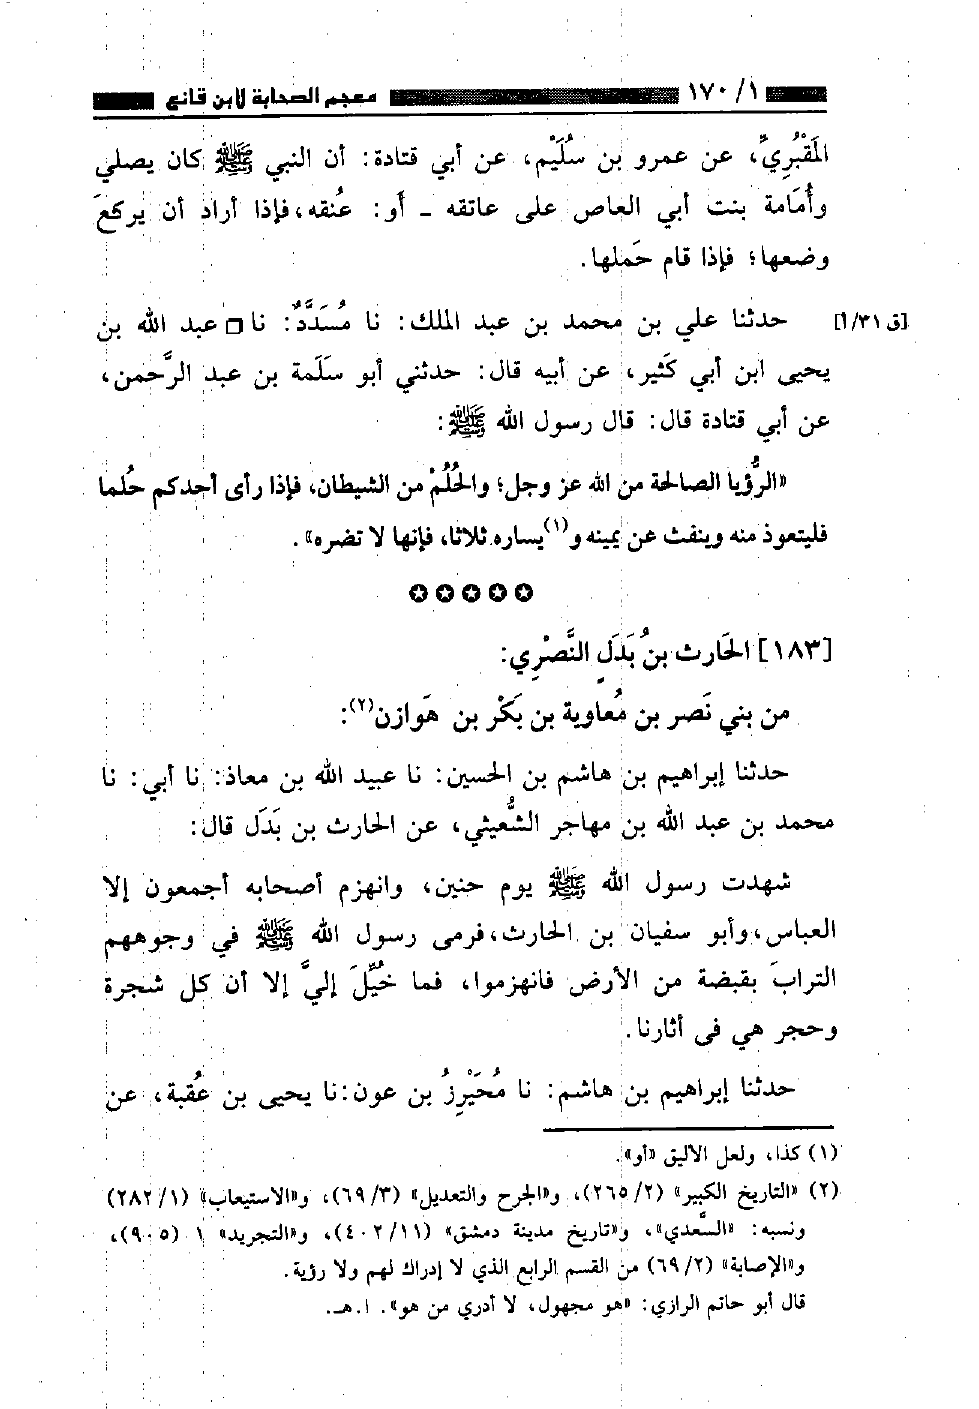 ١/ ١٧٠ معجم الصحابة لابن قانع
المَقْبُرِيِّ، عن عمرو بن سُلَيْم، عن أبي قتادة: أن النبي ﷺ كان يصلي
وأُمَامة بنت أبي العاص على عاتقه ـ أَو: عنقه، فإذا أراد أن يركعَ
وضعها؛ فإذا قام حَملها.
[ق ٣١/أ] حدثنا علي بن محمد بن عبد الملك: نا مُسَدَّدٌ: نا □ عبد الله بن
يحيى ابن أبي كَثير، عن أبيه قال: حدثني أبو سَلَمة بن عبد الرَّحمن،
عن أبي قتادة قال: قال رسول الله ﷺ:
«الرُّؤيا الصالحة من الله عز وجل؛ والحُلُمْ من الشيطان، فإذا رأى أحدكم حُلما
فليتعوذ منه وينفث عن يمينه و(١)يساره ثلاثا، فإنها لا تضره».
✪✪✪✪✪
[١٨٣] الحَارث بنُ بَدَلٍ النَّصْرِي:
من بني نَصر بن مُعاوية بن بَكْر بن هَوازن(٢):
حدثنا إبراهيم بن هاشم بن الحسين: نا عبيد الله بن معاذ: نا أبي: نا
محمد بن عبد الله بن مهاجر الشُّعيثي، عن الحارث بن بَدَل قال:
شهدت رسول الله ﷺ يوم حنين، وانهزم أصحابه أجمعون إلا
العباس، وأبو سفيان بن الحارث، فرمى رسول الله ﷺ في وجوههم
الترابَ بقبضة من الأرض فانهزموا، فما خُيِّلَ إليَّ إلا أن كل شجرة
وحجر هي فى أثارنا.
حدثنا إبراهيم بن هاشم: نا مُحَيْرِزُ بن عون: نا يحيى بن عُقبة، عن
(١) كذا، ولعل الأليق «أو».
(٢) «التاريخ الكبير» (٢/ ٢٦٥)، و«الجرح والتعديل» (٣/ ٦٩)، و«الاستيعاب» (١/ ٢٨٢)
ونسبه: «السَّعدي»، و«تاريخ مدينة دمشق» (١١/ ٤٠٢)، و«التجريد» ١ (٩٠٥)،
و«الإصابة» (٢/ ٦٩) من القسم الرابع الذي لا إدراك لهم ولا رؤية.
قال أبو حاتم الرازي: «هو مجهول، لا أدري من هو». ا.هـ.